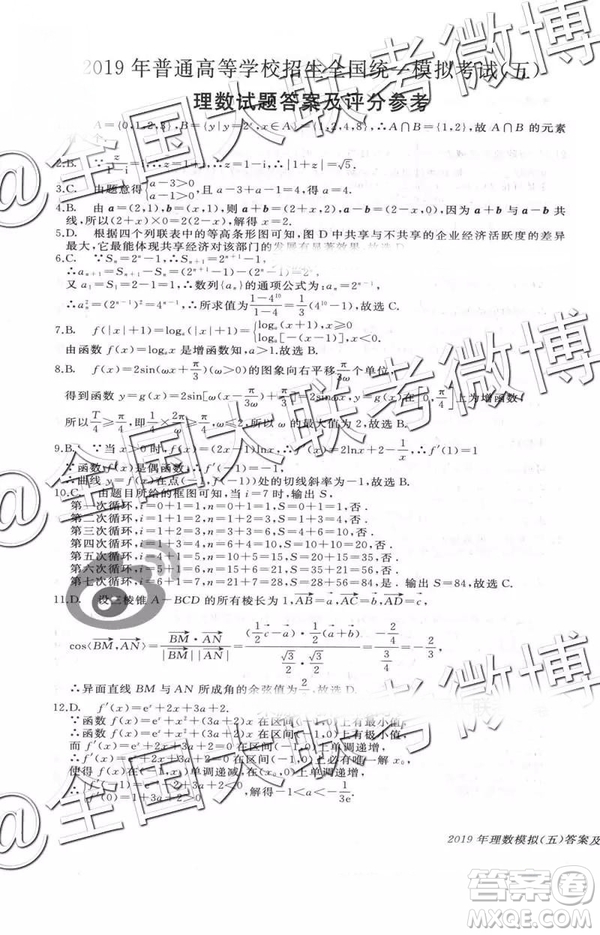 2019年普通高等学校招生全国统一模拟考试(五)
理数试题答案及评分参考
A={0,1,2,3}, B={y|y=2ˣ,x∈A}={1,2,4,8},∴A∩B={1,2},故A∩B的元素
2.B. =1-i,∴|1+z|=√5.
3.C. 由题意得{a-3>0, a-1>0. ∴a-3+a-1=4,得a=4.
4.B. 由a=(2,1),b=(x,1),则a+b=(2+x,2),a-b=(2-x,0),因为a+b与a-b共
线,所以(2+x)×0=2(2-x),解得x=2.
5.D. 根据四个列联表中的等高条形图可知,图D中共享与不共享的企业经济活跃度的差异
最大,它最能体现共享经济对该部门的发展有显著效果,故选D.
6.C. ∵Sₙ=2ⁿ-1,∴Sₙ₊₁=2ⁿ⁺¹-1
∴aₙ₊₁=Sₙ₊₁-Sₙ=2ⁿ⁺¹-2ⁿ=2ⁿ
又a₁=S₁=2-1=1,∴数列{aₙ}的通项公式为:aₙ=2ⁿ⁻¹,
∴aₙ²=(2ⁿ⁻¹)²=4ⁿ⁻¹,∴所求值为(1-4¹⁰)/(1-4)=1/3(4¹⁰-1),故选C.
7.B. f(|x|+1)=logₐ(|x|+1)={logₐ(x+1), x≥0 logₐ[-(x-1)],x<0
由函数f(x)=logₐx是增函数知,a>1.故选B.
8.B. f(x)=2sin(ωx+π/3)(ω>0)的图象向右平移π/3ω个单位,
得到函数y=g(x)=2sin[ω(x-π/3ω)+π/3]=2sinωx,y=g(x)在[0,π/4]上为增函数,
所以T/4≥π/4,即1/4×2π/ω≥π/4,
9.B. ∵当x>0时,f(x)=(2x-1)lnx,∴f′(x)=2lnx+2-1/x,∴f′(1)=1
∵函数f(x)是偶函数,∴f′(-1)=-1
∴曲线y=f(x)在点(-1,f(-1))处的切线斜率为-1,故选B.
10.C. 由题目所给的框图可知,当i=7时,输出S.
第一次循环,i=1,n=0+1=1,S=0+1=1,否.
第二次循环,i=2,n=1+2=3,S=1+3=4,否.
第三次循环,i=3,n=3+3=6,S=4+6=10,否.
第四次循环,i=4,n=6+4=10,S=10+10=20,否.
第五次循环,i=5,n=10+5=15,S=20+15=35,否.
第六次循环,i=6,n=15+6=21,S=35+21=56,否.
第七次循环,i=7,n=21+7=28,S=56+28=84,是.输出S=84,故选C.
11.D. 设三棱锥A-BCD的所有棱长为1,AB=a,AC=b,AD=c,
cos⟨BM,AN⟩=BM·AN/|BM||AN|=(1/2c-a)·1/2(a+b)/(√3/2·√3/2)=-1/2/3/4=-2/3.
∴异面直线BM与AN所成角的余弦值为
12.D. f′(x)=eˣ+2x+3a+2,
∵函数f(x)=eˣ+x²+(3a+2)x在区间(-1,0)上有最小值
∴函数f(x)=eˣ+x²+(3a+2)x在区间(-1,0)上有极小值,而
f′(x)=eˣ+2x+3a+2在区间(-1,0)上单调递增,
∴f′(x)=eˣ+2x+3a+2=0在区间(-1,0)上必有唯一解,记为x₀,
使得f(x)在(-1,x₀)单调递减,在(x₀,0)上单调递增,
∴{f′(-1)=e⁻¹-2+3a+2<0 f′(0)=1+3a+2>0,解得-1<a<-1/3e
2019年理数模拟(五)答案及
@全国大联考微博
@全国大联考微博
@全国大联考微博
答案卷
MXQE.COM